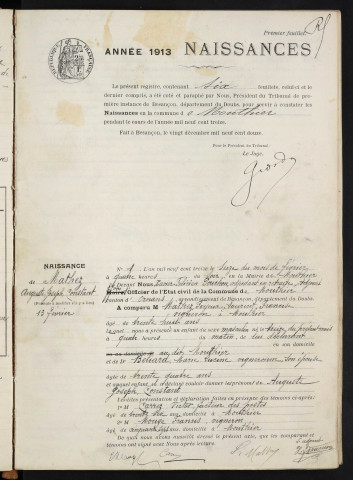 Premier feuillet.
RÉPUBLIQUE FRANÇAISE
ANNÉE 1913 NAISSANCES
Le présent registre, contenant six feuillets, celui-ci et le
dernier compris, a été coté et paraphé par Nous, Président du Tribunal de pre-
mière instance de Besançon, département du Doubs, pour servir à constater les
Naissances en la commune d e Mouthier
pendant le cours de l'année mil neuf cent treize.
Fait à Besançon, le vingt décembre mil neuf cent douze.
Pour le Président du Tribunal:
Le Juge,
NAISSANCE
de Mathez
Auguste Joseph Constant
13 février
N° 1. L'an mil neuf cent treize le treize du mois de février
à quatre heures du soir, en la Mairie de Mouthier
et Devant Nous,
Officier de l'État civil de la Commune de Mouthier
canton d'Ornans, département de Besançon, département du Doubs.
A comparu M Mathez
vigneron à Mouthier
âgé de trente huit ans
lequel nous a présenté un enfant du sexe masculin né le treize du présent mois
à quatre heures du matin, de lui déclarant
en son domicile
au dit Mouthier
et de Marie vigneronne son épouse
âgée de trente quatre ans
et auquel enfant il déclare vouloir donner les prénoms de Auguste
Joseph, Constant
Lesdites présentation et déclaration faites en présence des témoins ci-après:
1° M Victor, facteur des postes
âgé de ans, domicilié à Mouthier
2° M Francis, vigneron
âgé de ans, domicilié à Mouthier
De quoi nous avons dressé le présent acte, que les comparant et
témoins ont signé avec Nous après lecture.